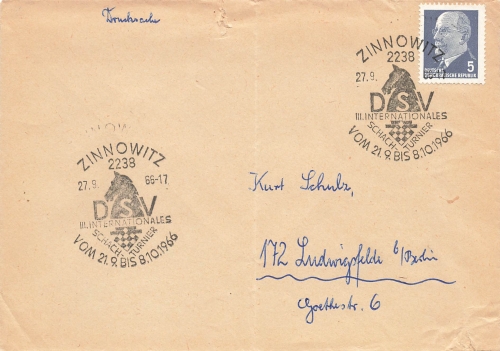 Drucksache
ZINNOWITZ
2238
27.9.
DSV
III. INTERNATIONALES
SCHACH-TURNIER
VOM 21.9. BIS 8.10.1966
5
DEUTSCHE DEMOKRATISCHE REPUBLIK
ZINNOWITZ
2238
27.9. 66-17
DSV
III. INTERNATIONALES
SCHACH-TURNIER
VOM 21.9. BIS 8.10.1966
Kurt Schulz,
172 Ludwigsfelde b/Berlin
Goethestr. 6